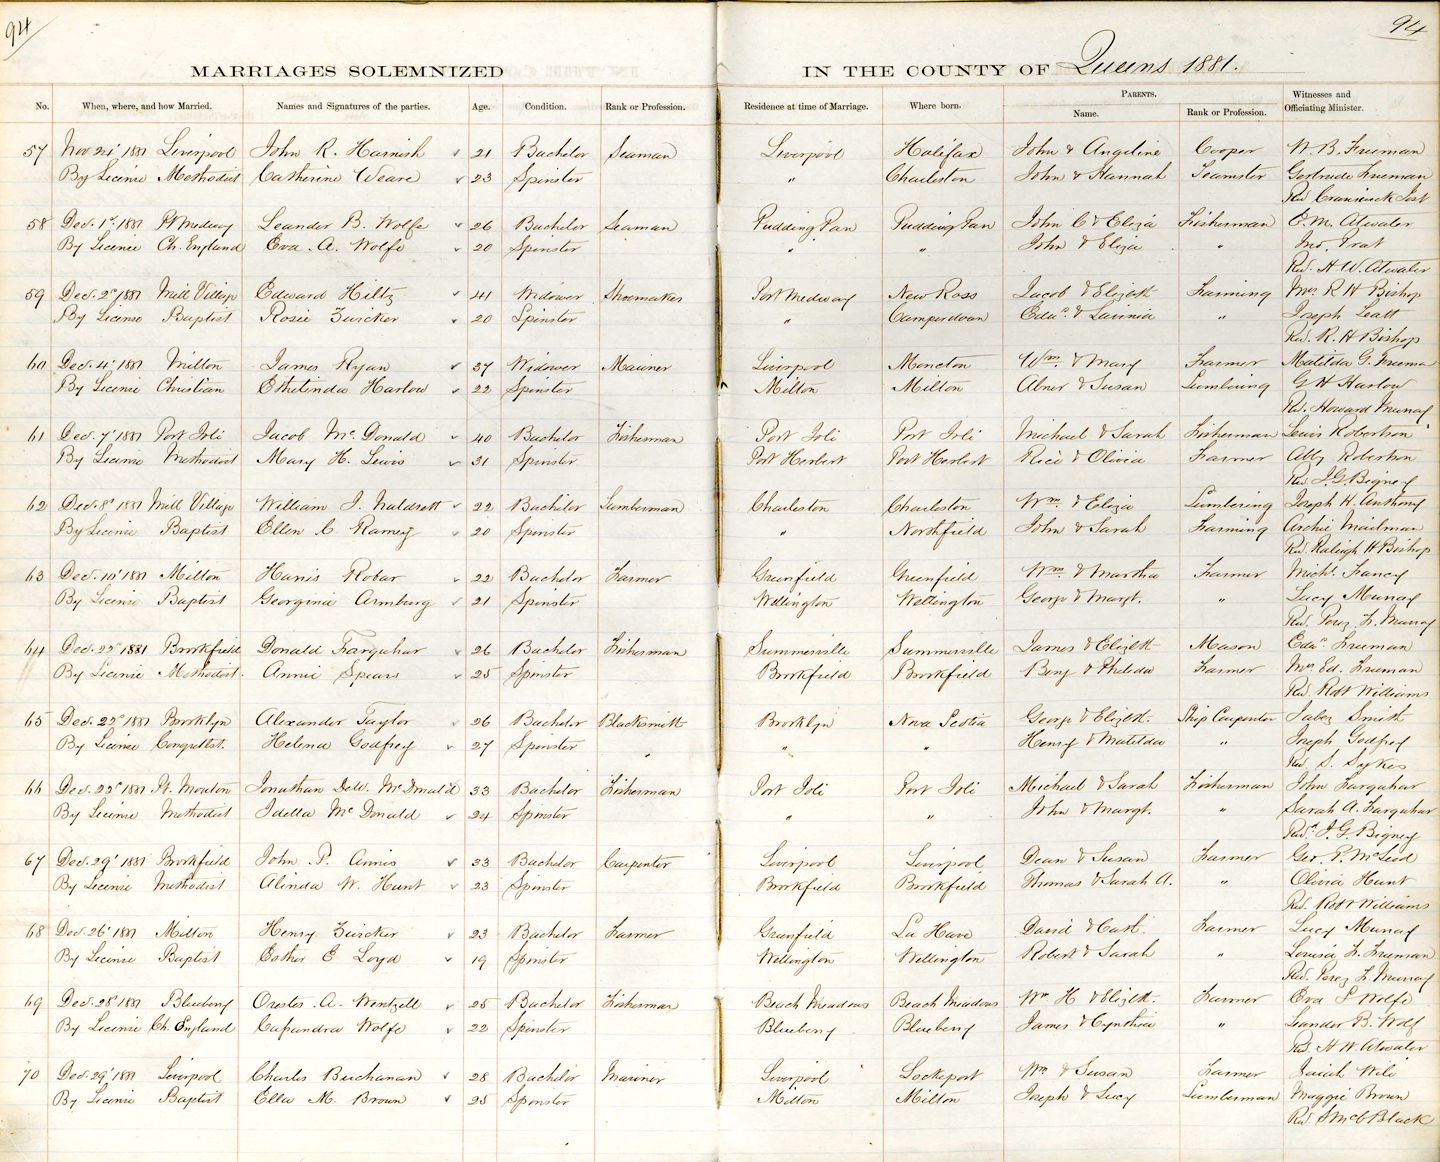 94
94
MARRIAGES SOLEMNIZED IN THE COUNTY OF Queens 1881.
No. When, where, and how Married. Names and Signatures of the parties. Age. Condition. Rank or Profession. Residence at time of Marriage. Where born. PARENTS. Name. Rank or Profession. Witnesses and Officiating Minister.
57 Nov 24' 1881 Liverpool John R. Harnish 21 Bachelor Seaman Liverpool Halifax John & Angeline Cooper W. B. Freeman
By License Methodist Catherine Weare 23 Spinster " Charleston John & Hannah Teamster Gertrude Freeman
Rev Cranswick Jost
58 Dec. 1st 1881 Pt Medway Leander B. Wolfe 26 Bachelor Seaman Pudding Pan Pudding Pan John C & Eliza Fisherman E. M. Atwater
By Licence Ch. England Eva A. Wolfe 20 Spinster " " John & Eliza " Jno.
Rev. H. W. Atwater
59 Dec. 2d 1881 Mill Village Edward Hiltz 41 Widower Shoemaker Port Medway New Ross Jacob & Elizbth Farming Mrs R H Bishop
By License Baptist Rosie Zwicker 20 Spinster " Camperdown Edwd. & Lavinia " Joseph Leatt
Rev. R. H Bishop
60 Dec. 4' 1881 Milton James Ryan 37 Widower Mariner Liverpool Moncton Wm & Mary Farmer Matilda G. Freeman
By License Christian Ethelinda Harlow 22 Spinster Milton Milton Abner & Susan Lumbering G H Harlow
Rev. Howard Murray
61 Dec. 7' 1881 Port Joli Jacob McDonald 40 Bachelor Fisherman Port Joli Port Joli Michael & Sarah Fisherman Lewis Robertson
By License Methodist Mary H. Lewis 31 Spinster Port Herbert Port Herbert Rice & Olivia Farmer Abby Robertson
Rev. J G Bigney
62 Dec. 8' 1881 Mill Village William J. 22 Bachelor Lumberman Charleston Charleston Wm & Eliza Lumbering Joseph H. Anthony
By License Baptist Ellen C. Ramey 20 Spinster " Northfield John & Sarah Farming Archie Mailman
Rev. Raleigh H Bishop
63 Dec. 10' 1881 Milton Harris Robar 22 Bachelor Farmer Greenfield Greenfield Wm & Martha Farmer Michl. Francey
By License Baptist Georgina Armburg 21 Spinster Wellington Wellington George & Margt. " Lucy Murray
Rev. Perez F. Murray
64 Dec. 22d 1881 Brookfield Donald Farquhar 26 Bachelor Fisherman Summerville Summerville James & Elizbth Mason Edwd. Freeman
By License Methodist. Annie Spears 25 Spinster Brookfield Brookfield Benj & Philida Farmer Mrs Ed. Freeman
Rev. Robt Williams
65 Dec. 22d 1881 Brooklyn Alexander Taylor 26 Bachelor Blacksmith Brooklyn Nova Scotia George & Elizbth. Ship Carpenter Jabez Smith
By License Congretlst. Helena Godfrey 27 Spinster " " " Henry & Matilda " Joseph Godfrey
Rev S. Sykes
66 Dec. 22d 1881 Pt. Mouton Jonathan DeW. McDonald 33 Bachelor Fisherman Port Joli Port Joli Michael & Sarah Fisherman John Farquhar
By License Methodist Idella McDonald 24 Spinster " " John & Margt. " Sarah A. Farquhar
Revd J. G. Bigney
67 Dec. 29' 1881 Brookfield John P. Annis 33 Bachelor Carpenter Liverpool Liverpool Dean & Susan Farmer Geo. P. McLeod
By License Methodist Alinda W. Hunt 23 Spinster Brookfield Brookfield Thomas & Sarah A. " Olivia Hunt
Rev. Robt Williams
68 Dec. 26' 1881 Milton Henry Zwicker 23 Bachelor Farmer Greenfield La Have David & Cath. Farmer Lucy Murray
By License Baptist Esther E Loyd 19 Spinster Wellington Wellington Robert & Sarah " Louisa F. Freeman
Rev. Perez F. Murray
69 Dec. 28' 1881 Blueberry Orestes A. Wentzell 25 Bachelor Fisherman Beach Meadows Beach Meadows Wm H & Elizbth. Farmer Eva L Wolfe
By License Ch. England Cassandra Wolfe 22 Spinster Blueberry Blueberry James & Cynthia " Leander B. Wolf
Rev. H. W. Atwater
70 Dec. 29' 1881 Liverpool Charles Buchanan 28 Bachelor Mariner Liverpool Lockeport Wm & Susan Farmer Isaiah Wile
By License Baptist Ella M. Brown 25 Spinster Milton Milton Joseph & Lucy Lumberman Maggie Brown
Rev. S McC Black